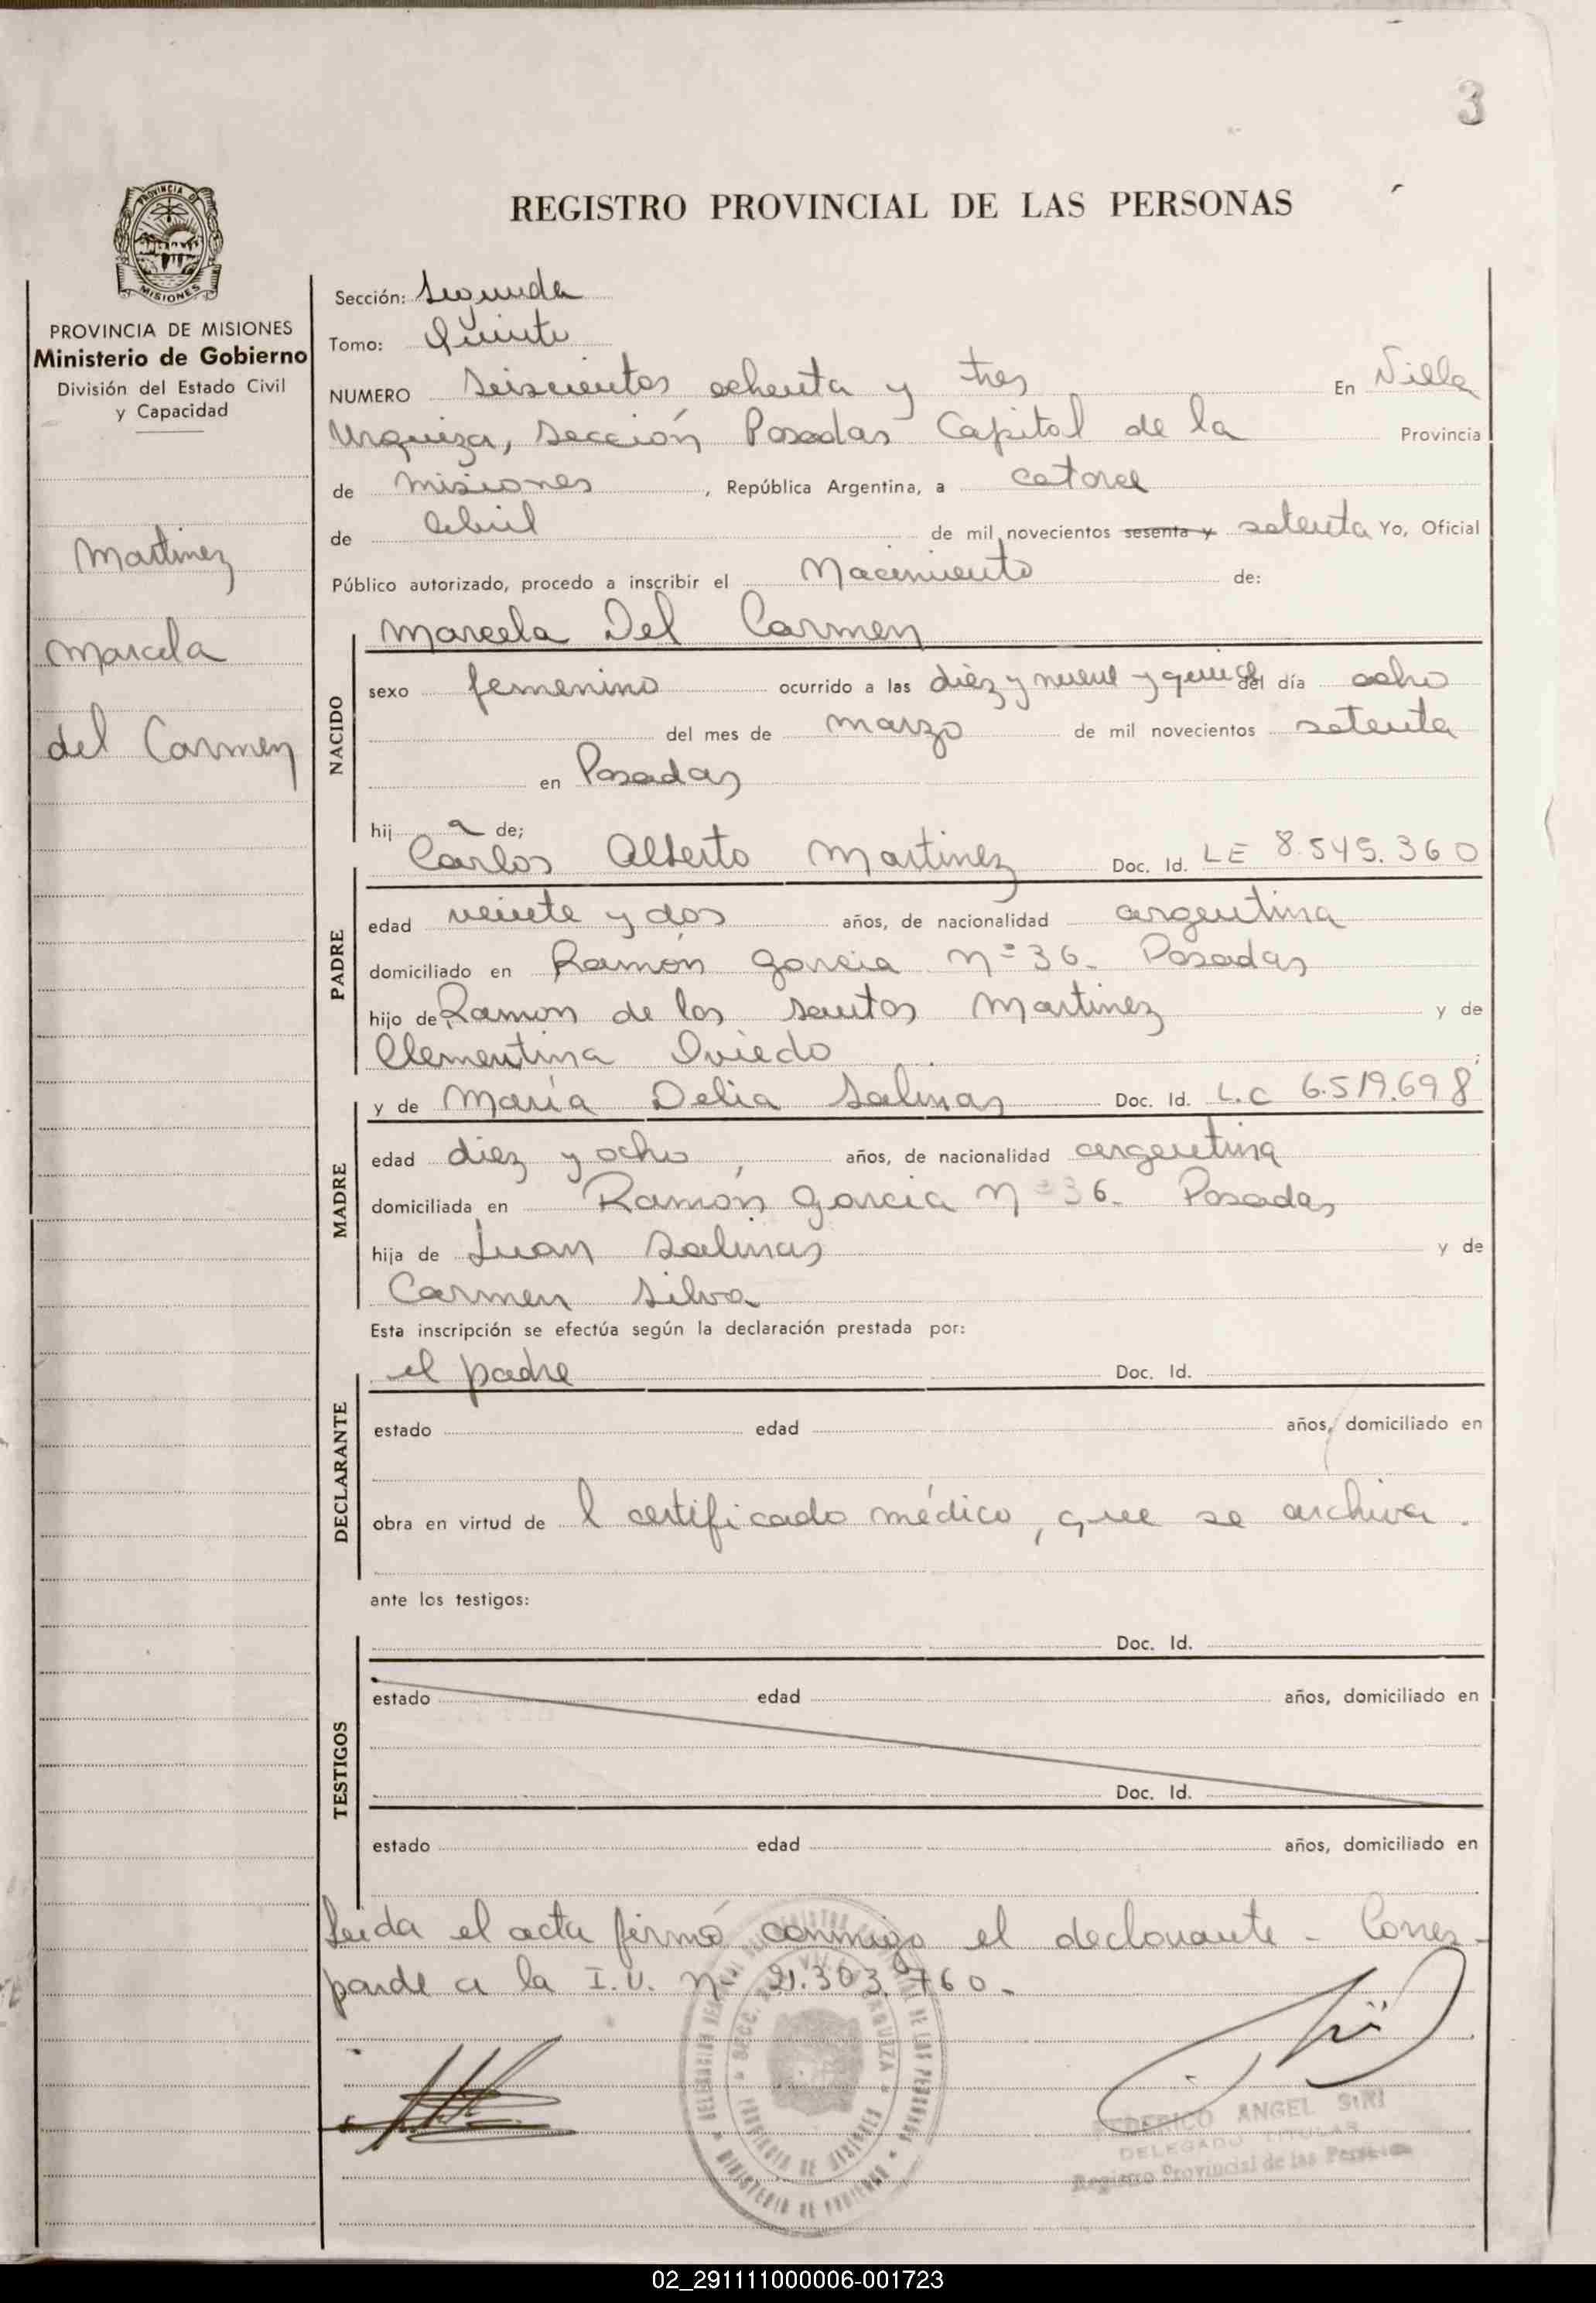 3
REGISTRO PROVINCIAL DE LAS PERSONAS
PROVINCIA DE
MISIONES
PROVINCIA DE MISIONES
Ministerio de Gobierno
División del Estado Civil
y Capacidad
Martinez
Marcela
del Carmen
Sección: Segunda
Tomo: Quinto
NUMERO Seiscientos ochenta y tres En Villa
Urquiza, Sección Posadas Capital de la Provincia
de Misiones, República Argentina, a catorce
de Abril de mil novecientos sesenta y setenta Yo, Oficial
Público autorizado, procedo a inscribir el Nacimiento de:
Marcela Del Carmen
NACIDO
sexo femenino ocurrido a las diéz y nueve y quince del día ocho
del mes de marzo de mil novecientos setenta
en Posadas
hij a de;
Carlos Alberto Martinez Doc. Id. LE 8.545.360
PADRE
edad veinte y dos años, de nacionalidad argentina
domiciliado en Ramón Garcia Nº 36. Posadas
hijo de Ramon de los Santos Martinez y de
Clementina Oviedo ;
y de María Delia Salinas Doc. Id. L.C 6.519.698
MADRE
edad diez y ocho, años, de nacionalidad argentina
domiciliada en Ramón Garcia Nº 36. Posadas
hija de Juan Salinas y de
Carmen Silva
Esta inscripción se efectúa según la declaración prestada por:
el padre Doc. Id.
DECLARANTE
estado edad años, domiciliado en
obra en virtud de l certificado médico, que se archiva.
ante los testigos:
Doc. Id.
TESTIGOS
estado edad años, domiciliado en
Doc. Id.
estado edad años, domiciliado en
Leida el acta firmó conmigo el declarante - Corres-
ponde a la I.U. Nº 21.303.760.
PROVINCIA DE MISIONES
MINISTERIO DE GOBIERNO
FEDERICO ANGEL SIRI
DELEGADO TITULAR
Registro Provincial de las Personas
02_291111000006-001723